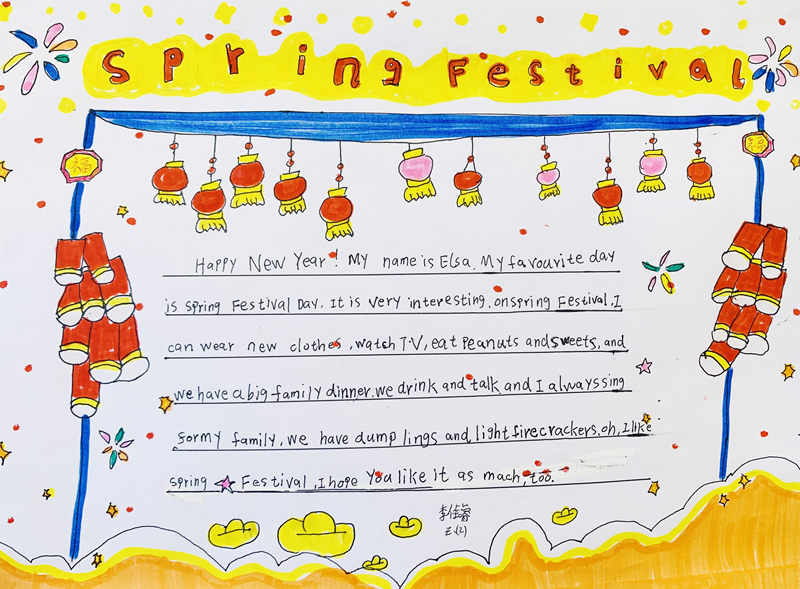 Spring Festival
福
福
Happy New Year! My name is Elsa. My favourite day
is spring Festival Day. It is very interesting. on spring Festival. I
can wear new clothes, watch T.V, eat peanuts and sweets, and
we have a big family dinner. we drink and talk and I always sing
for my family, we have dump lings and light firecrackers. oh, I like
spring Festival, I hope you like it as mach, too.
李佳睿
三(2)